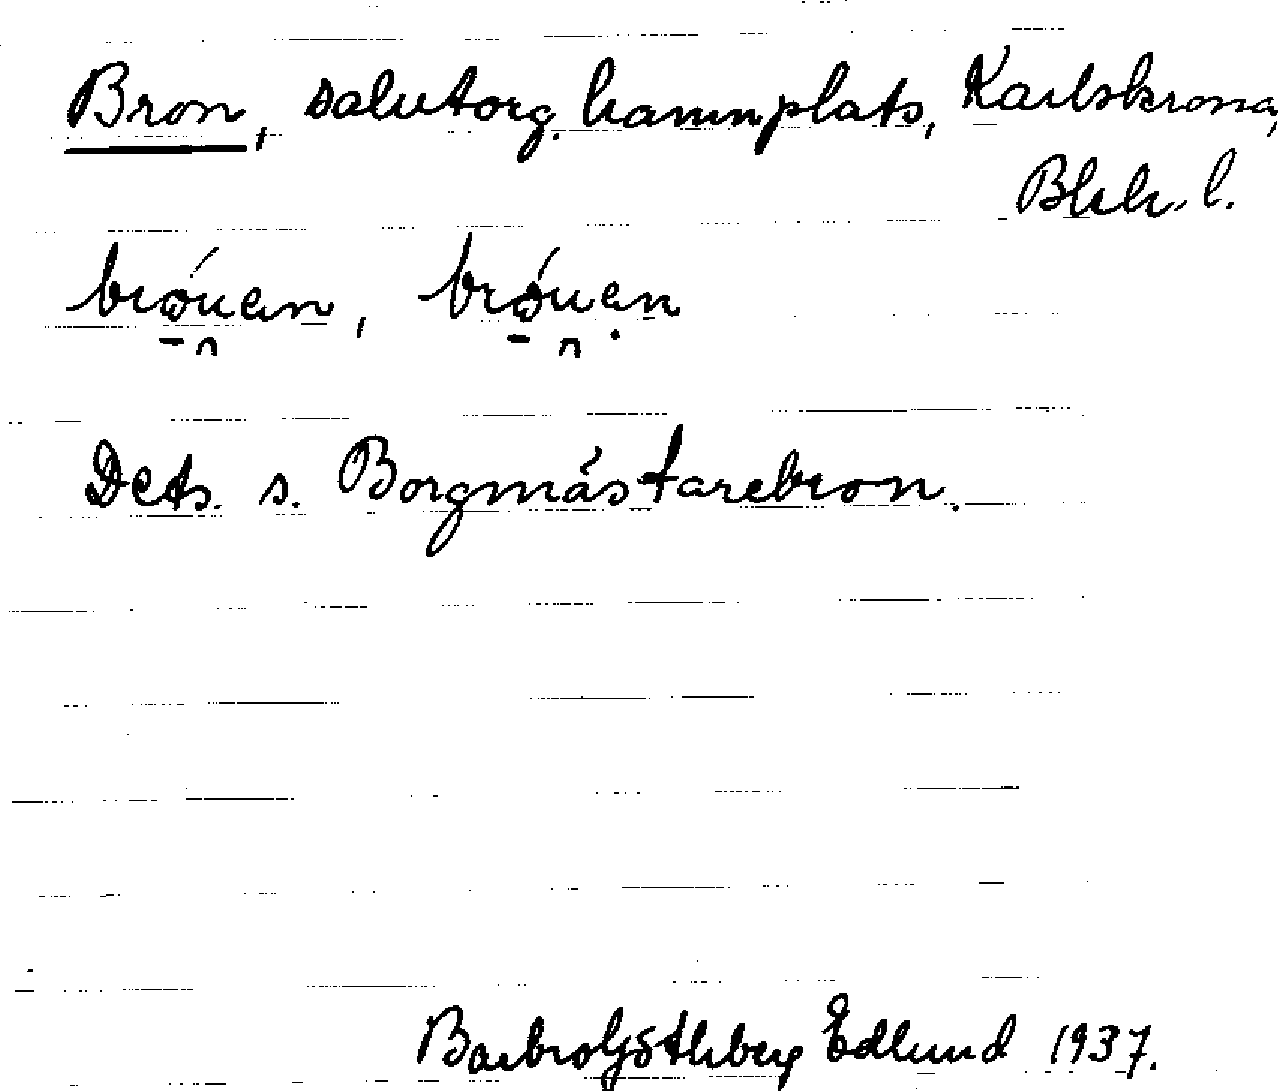 Bron, salutorg. hamnplats, Karlskrona,
Blek. l.
bróuen, bróuen
Dets. s. Borgmästarebron.
Barbro Göthberg Edlund 1937.